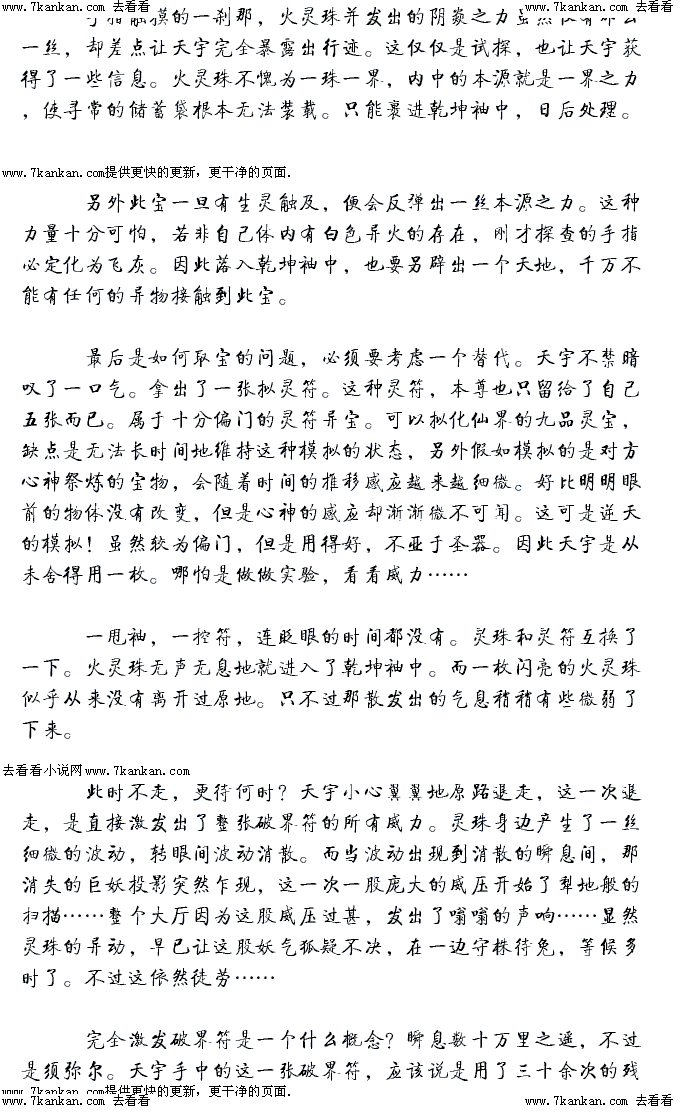 www.7kankan.com 去看看 www.7kankan.com 去看看
手指触摸的一刹那，火灵珠并发出的阴焱之力虽然仅有那么
一丝，却差点让天宇完全暴露出行迹。这仅仅是试探，也让天宇获
得了一些信息。火灵珠不愧为一珠一界，内中的本源就是一界之力
，使寻常的储蓄袋根本无法装载。只能裹进乾坤袖中，日后处理。
www.7kankan.com提供更快的更新，更干净的页面.
另外此宝一旦有生灵触及，便会反弹出一丝本源之力。这种
力量十分可怕，若非自己体内有白色异火的存在，刚才探查的手指
必定化为飞灰。因此落入乾坤袖中，也要另辟出一个天地，千万不
能有任何的异物接触到此宝。
最后是如何取宝的问题，必须要考虑一个替代。天宇不禁暗
叹了一口气。拿出了一张拟灵符。这种灵符，本尊也只留给了自己
五张而已。属于十分偏门的灵符异宝。可以拟化仙界的九品灵宝，
缺点是无法长时间地维持这种模拟的状态，另外假如模拟的是对方
心神祭炼的宝物，会随着时间的推移感应越来越细微。好比明明眼
前的物体没有改变，但是心神的感应却渐渐微不可闻。这可是逆天
的模拟！虽然较为偏门，但是用得好，不亚于圣器。因此天宇是从
未舍得用一枚。哪怕是做做实验，看看威力……
一甩袖，一控符，连眨眼的时间都没有。灵珠和灵符互换了
一下。火灵珠无声无息地就进入了乾坤袖中。而一枚闪亮的火灵珠
似乎从来没有离开过原地。只不过那散发出的气息稍稍有些微弱了
下来。
去看看小说网www.7kankan.com
此时不走，更待何时？天宇小心翼翼地原路退走，这一次退
走，是直接激发出了整张破界符的所有威力。灵珠身边产生了一丝
细微的波动，转眼间波动消散。而当波动出现到消散的瞬息间，那
消失的巨妖投影突然乍现，这一次一股庞大的威压开始了犁地般的
扫描……整个大厅因为这股威压过甚，发出了嗡嗡的声响……显然
灵珠的异动，早已让这股妖气狐疑不决，在一边守株待兔，等候多
时了。不过这依然徒劳……
完全激发破界符是一个什么概念？瞬息数十万里之遥，不过
是须弥尔。天宇手中的这一张破界符，应该说是用了三十余次的残
www.7kankan.com提供更快的更新，更干净的页面.
www.7kankan.com 去看看 www.7kankan.com 去看看